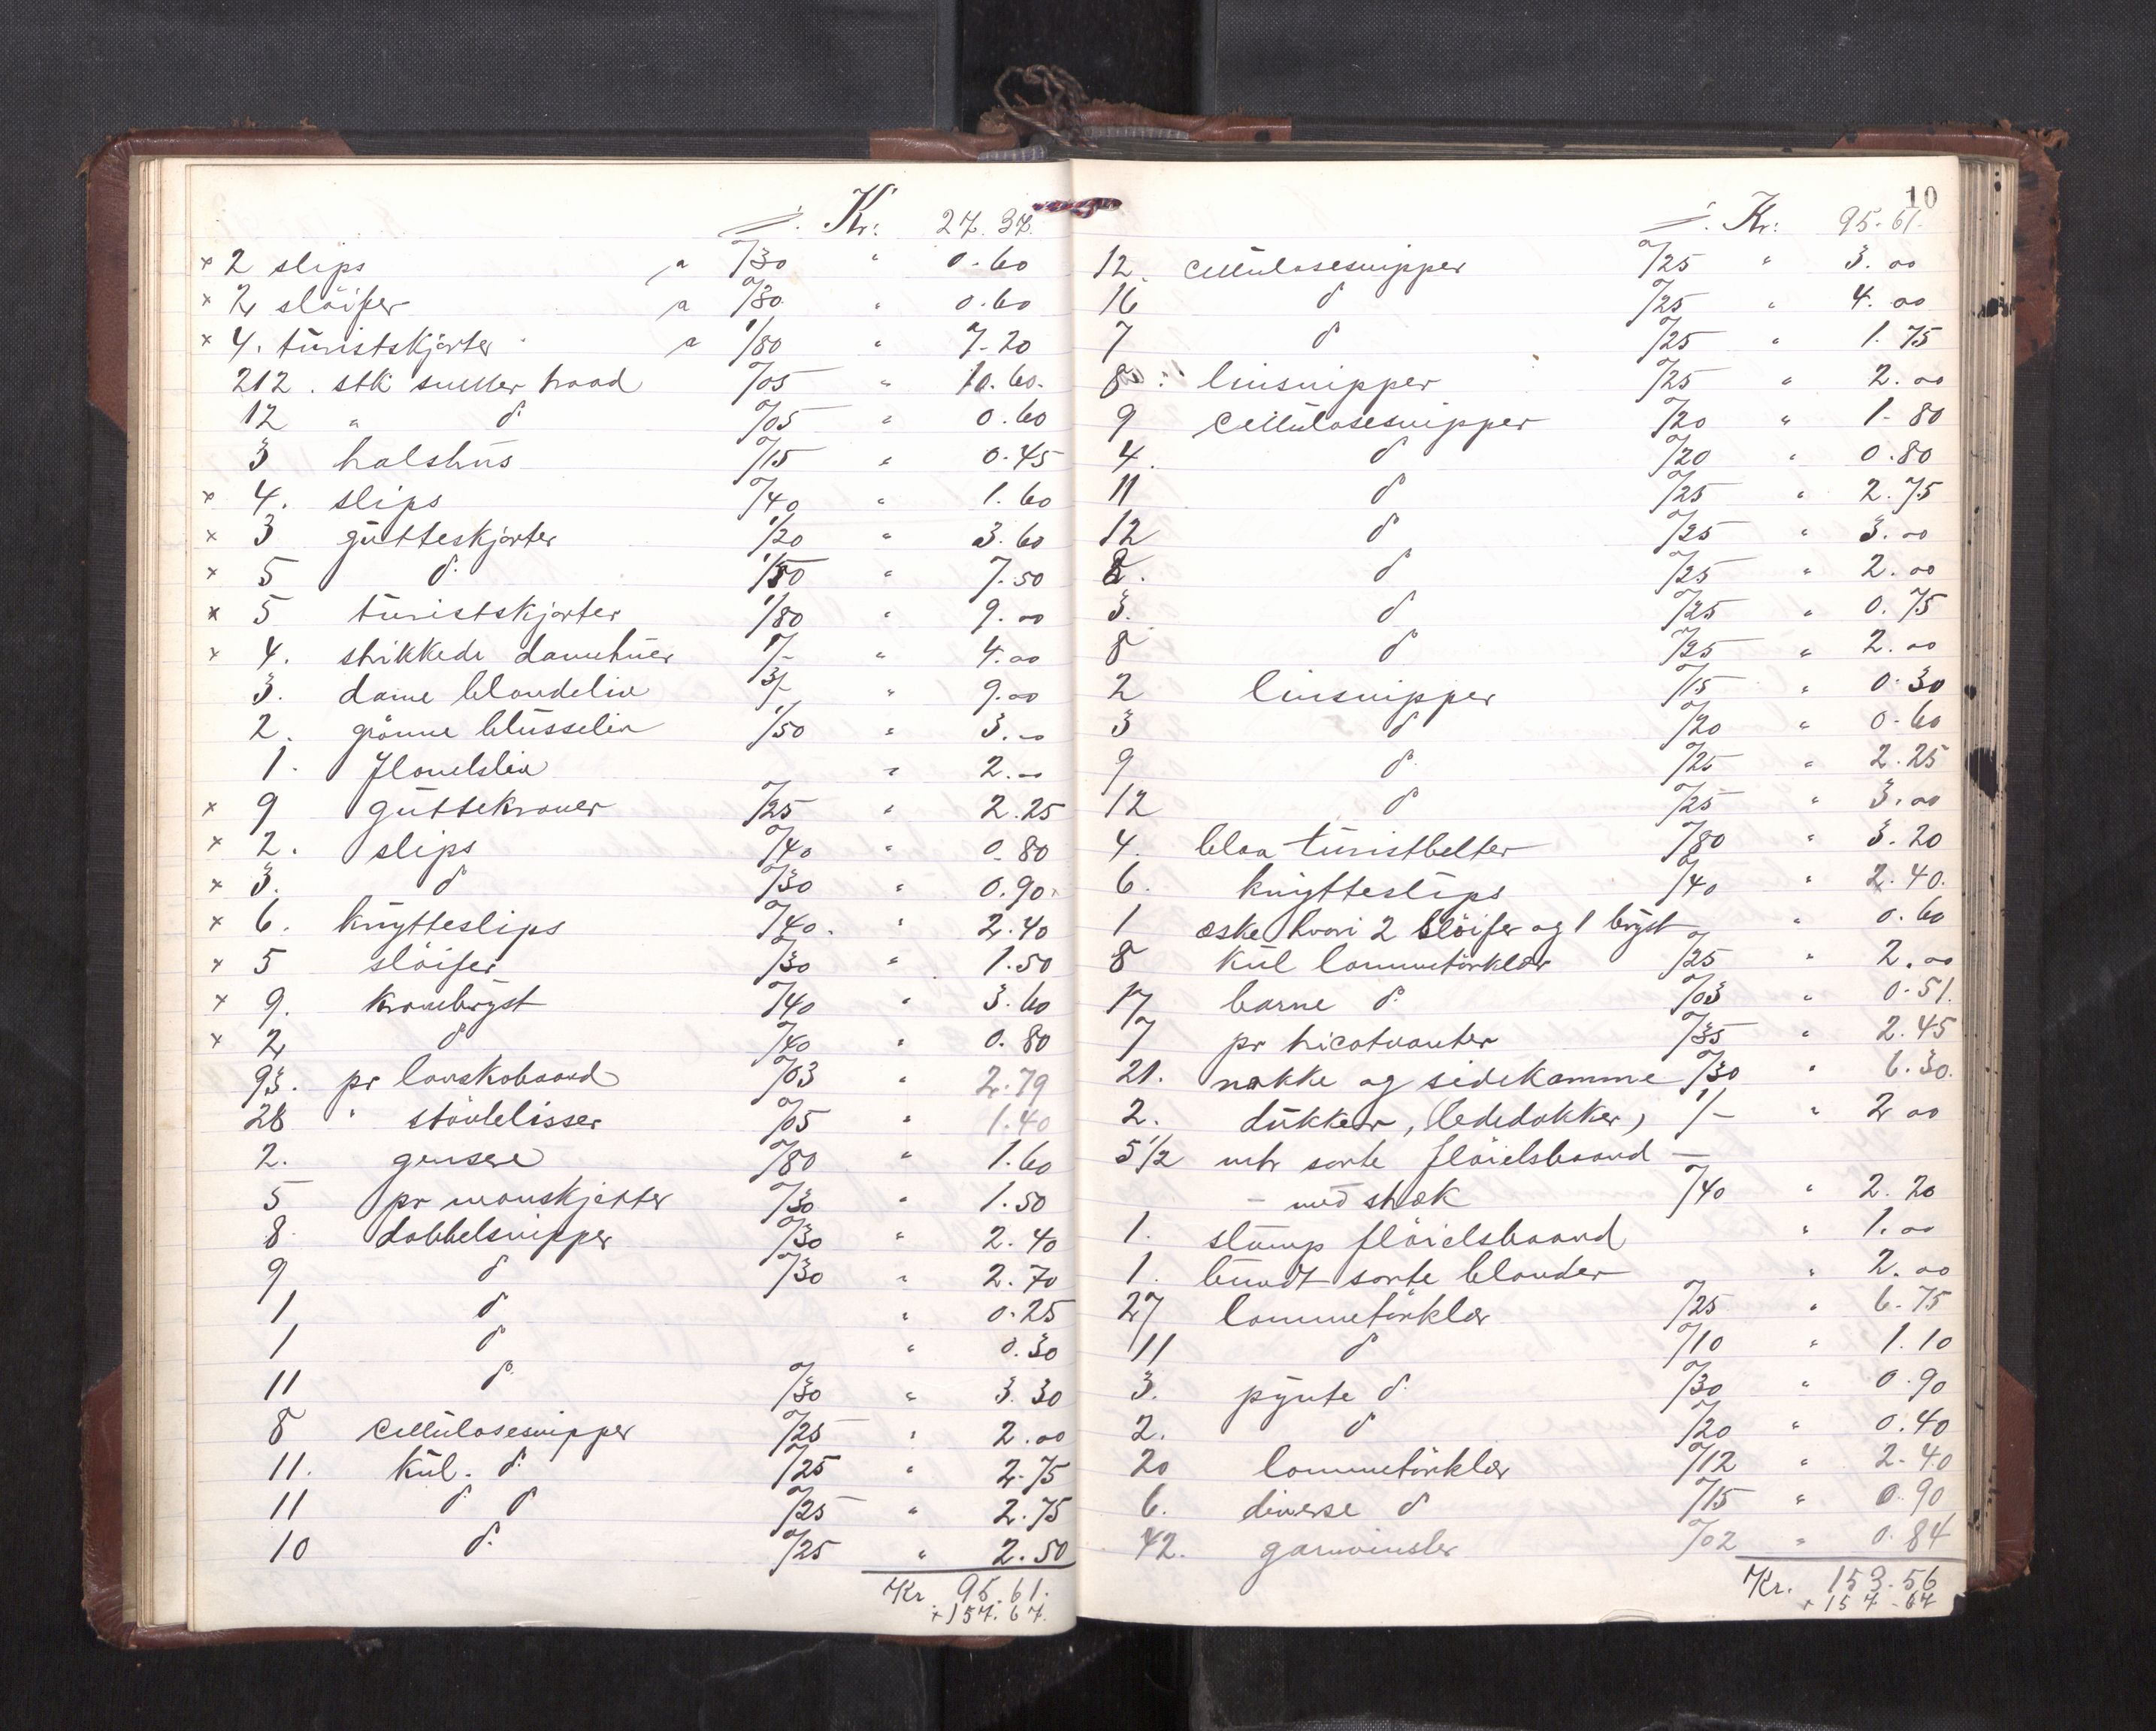 Kr: 27.37.
× 2 slips a 0/30 " 0.60
× 2 slöifer a 0/30 " 0.60
× 4. turistskjorter a 1/80 " 7.20
212. stk snører haand 0/05 " 10.60.
12 " d° 0/05 " 0.60
3 halshus 0/15 " 0.45
× 4. slips 0/40 " 1.60
× 3 gutteskjorter 1/20 " 3.60
× 5 d° 1/50 " 7.50
× 5 turistskjorter 1/80 " 9.00
× 4. strikkede damehuer 1/- " 4.00
3. dame blondeliv 3/- " 9.00
2. grönne bluseliv 1/50 " 3.00
1. flonelsliv " 2.00
× 9 guttekraver 0/25 " 2.25
× 2. slips 0/40 " 0.80
× 3. d° 0/30 " 0.90
× 6. knytteslips 0/40. " 2.40
× 5 slöifer 0/30 " 1.50
× 9. kravebryst 0/40 " 3.60
× 2 d° 0/40 " 0.80
93. pr lauskobaand 0/03 " 2.79
28 " stövlelisser 0/05 " 1.40
2. gensere 0/80 " 1.60
5 pr manskjetter 0/30 " 1.50
8 dobbelsnipper 0/30 " 2.40
9 d° 0/30 " 2.70
1 d° " 0.25
1 d° " 0.30
11 d° 0/30 " 3.30
8 cellulosesnipper 0/25 " 2.00
11. kul. d° 0/25 " 2.75
11 d° d° 0/25 " 2.75
10 d° 0/25 " 2.50
Kr. 95.61.
+157.67.
10
Kr: 95.61.
12. cellulosesnipper 0/25 " 3.00
16 d° 0/25 " 4.00
7 d° 0/25 " 1.75
8 " linsnipper 0/25 " 2.00
9 cellulosesnipper 0/20 " 1.80
4. d° 0/20 " 0.80
11 d° 0/25 " 2.75
12 d° 0/25 " 3.00
8. d° 0/25 " 2.00
3. d° 0/25 " 0.75
8 d° 0/25 " 2.00
2 linsnipper 0/15 " 0.30
3 d° 0/20 " 0.60
9 d° 0/25 " 2.25
12 d° 0/25 " 3.00
4. blaa turistbelter 0/80 " 3.20
6. knytteslips 0/40 " 2.40.
1 æske hvori 2 slöifer og 1 bryst " 0.60
8 kul lommetörklær 0/25 " 2.00
17 barne d° 0/03 " 0.51.
7 pr tricotvanter 0/35 " 2.45
21. nakke og sidekamme 0/30 " 6.30.
2. dukker, (ledddukker) 1/- " 2.00
5 1/2 mtr sorte flöielsbaand —
— med stræk 0/40 " 2.20
1. stump flöielsbaand " 1.00
1. bundt sorte blonder " 2.00
27 lommetörklær 0/25 " 6.75
11 d° 0/10 " 1.10
3. pynte d° 0/30 " 0.90
2. d° 0/20 " 0.40
20 lommetörklær 0/12 " 2.40
6. diverse d° 0/15 " 0.90
42. garnvinsler 0/02 " 0.84
Kr. 153.56
+157.67